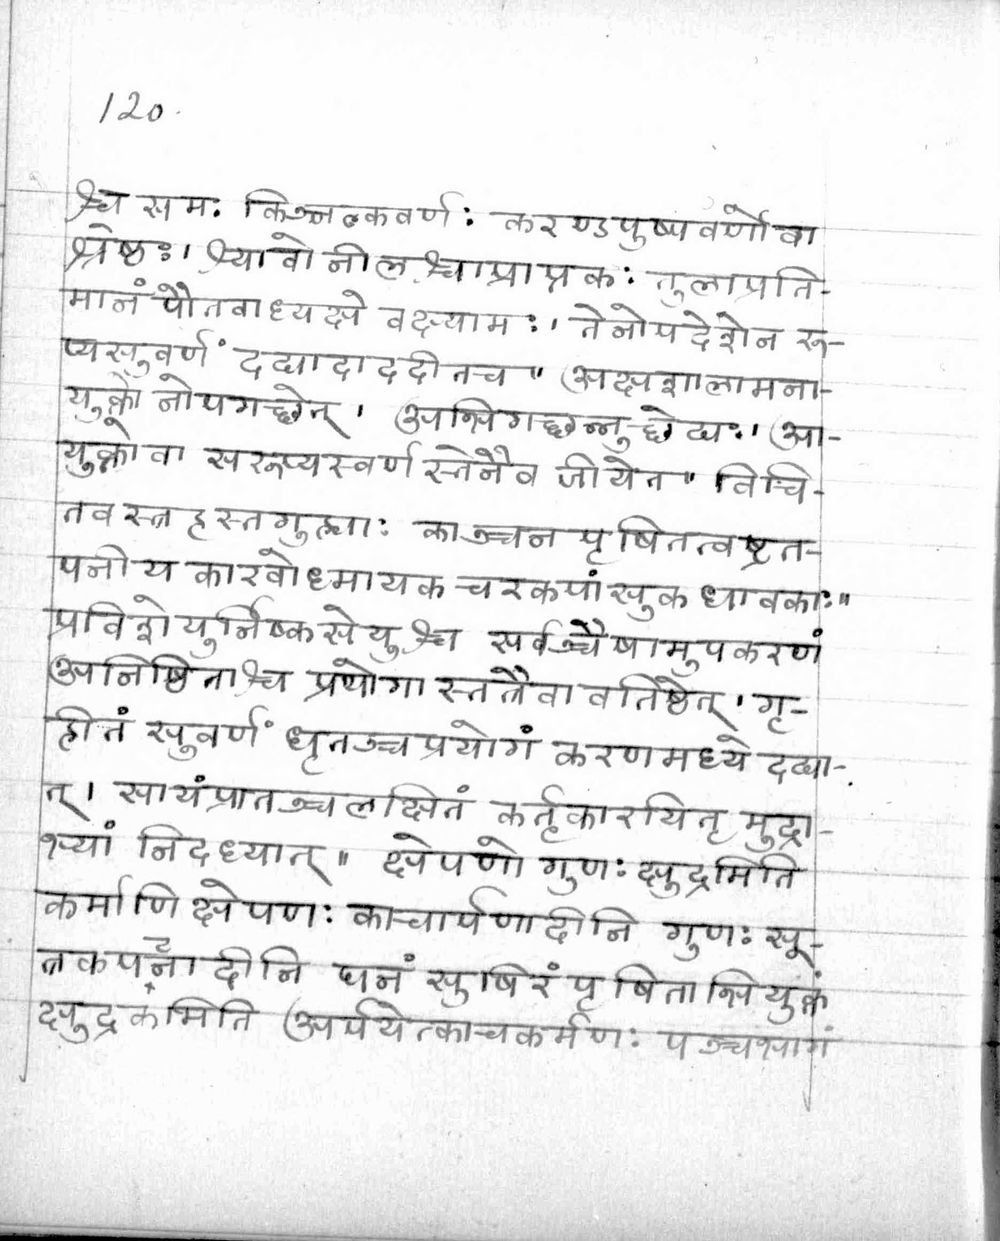 120.
श्च समः किञ्जल्कवर्णः करण्डपुष्पवर्णोवा
श्रेष्ठः। श्यावो नीलश्चाप्राप्तकः तुलाप्रति-
मानं पौतवाध्यक्षे वक्ष्यामः। तेनोपदेशेन रू-
प्यसुवर्णं दद्यादाददीतच॥ अक्षशालामना-
युक्तो नोपगच्छेत्। अभिगच्छन्नुच्छेद्यः। आ-
युक्तोवा सरूप्यस्वर्णस्तेनैव जीयेत॥ विचि-
तवस्त्रहस्तगुह्याः काञ्चन पृषितत्वष्ट्रत-
पनीय कारवोध्मायक चरकपांसुक धावकाः॥
प्रविशेयुर्निष्कसेयुश्च सर्वञ्चैषामुपकरणं
अनिष्ठिताश्च प्रयोगास्तत्रैवावतिष्ठेत्। गृ-
हीतं सुवर्णं धृतञ्च प्रयोगं करणमध्ये दद्या-
त्। सायंप्रातञ्चलक्षितं कर्तृकारयितृ मुद्रा-
भ्यां निदध्यात्॥ क्षेपणो गुणः क्षुद्रमिति
कर्माणि क्षेपणः काचार्पणादीनि गुणः सू-
त्रकपर्नादीनि घनं सुषिरं पृषिताभियुक्तं
क्षुद्रकमिति अर्पयेत्काचकर्मणः पञ्चभागं